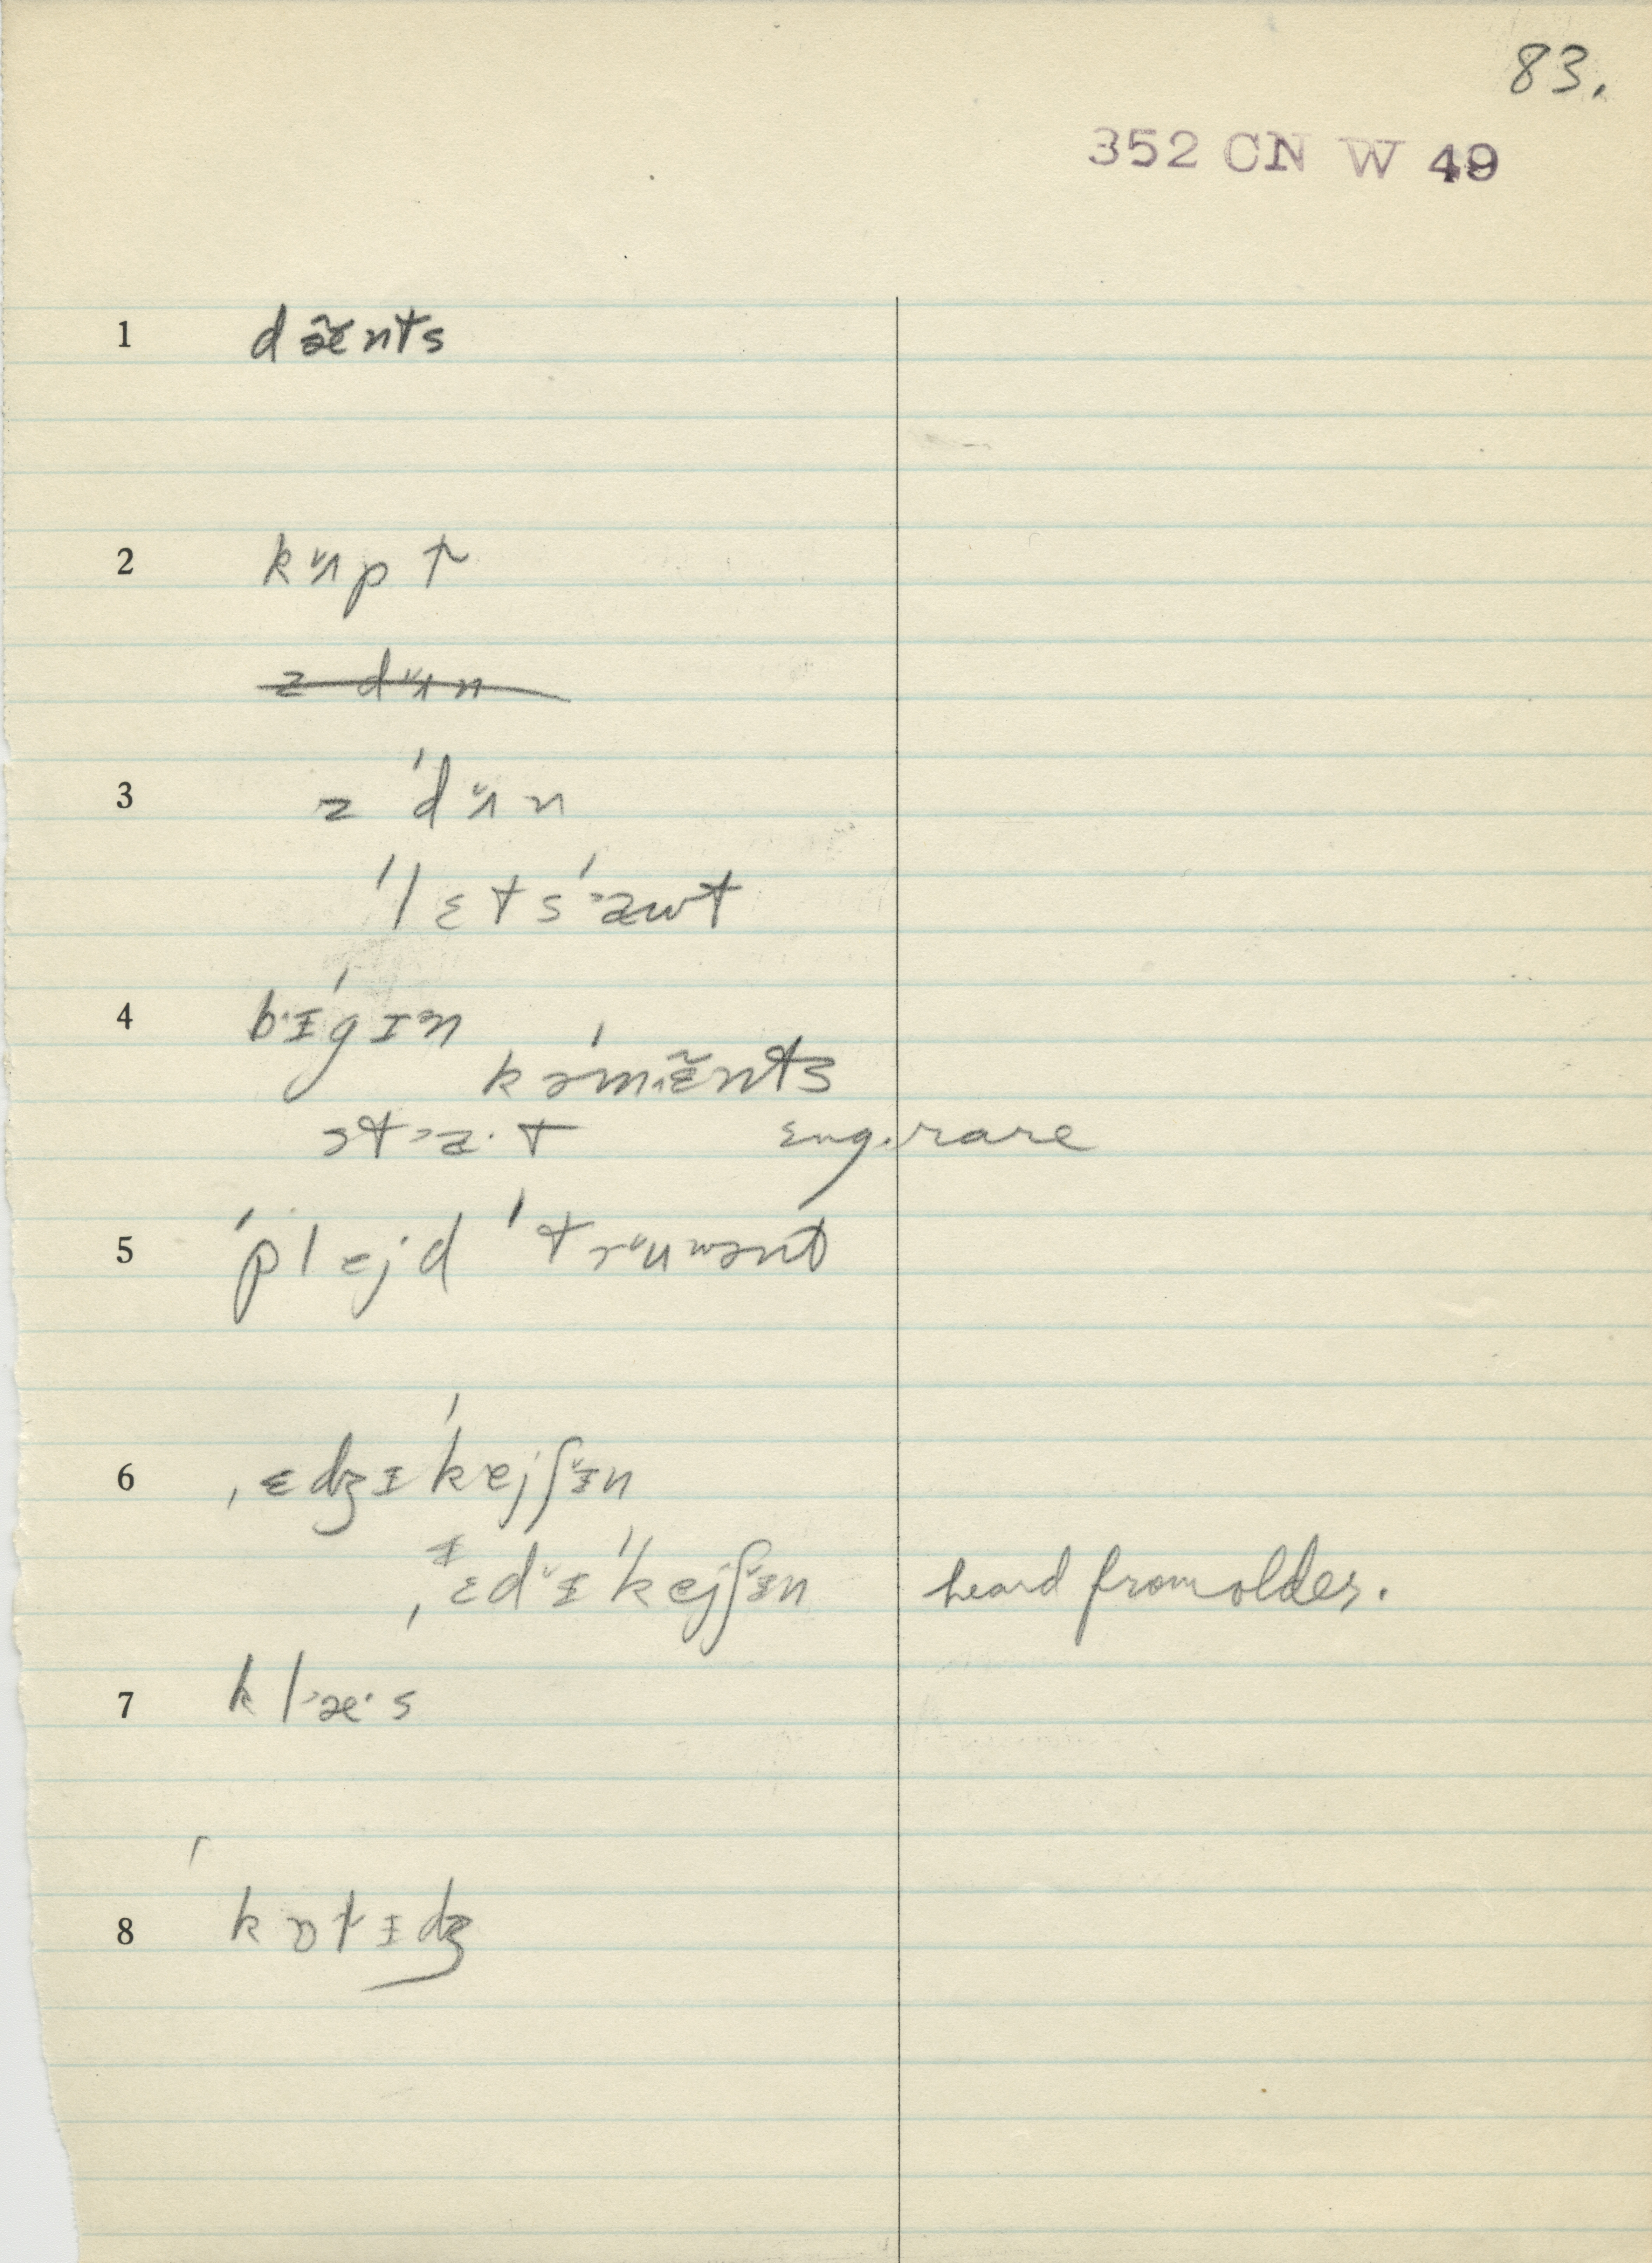 83.
352 CN W 49
1 dæ̃nts
2 kʌ̆pt
z dʌ̆n
3 z ˈdʌ̆n
ˈlɛtsˈawt
4 bɪˈgɪn
kəˈmɛ̃nts
sta·t eng. rare
5 ˈplejd ˈtrʉwənt
6 ˌɛdʒɪˈkejʃɪ̆n
ˌɛdɪ̆ˈkejʃɪ̆n heard from older.
7 klæ·s
8 ˈkɒtɪdʒ